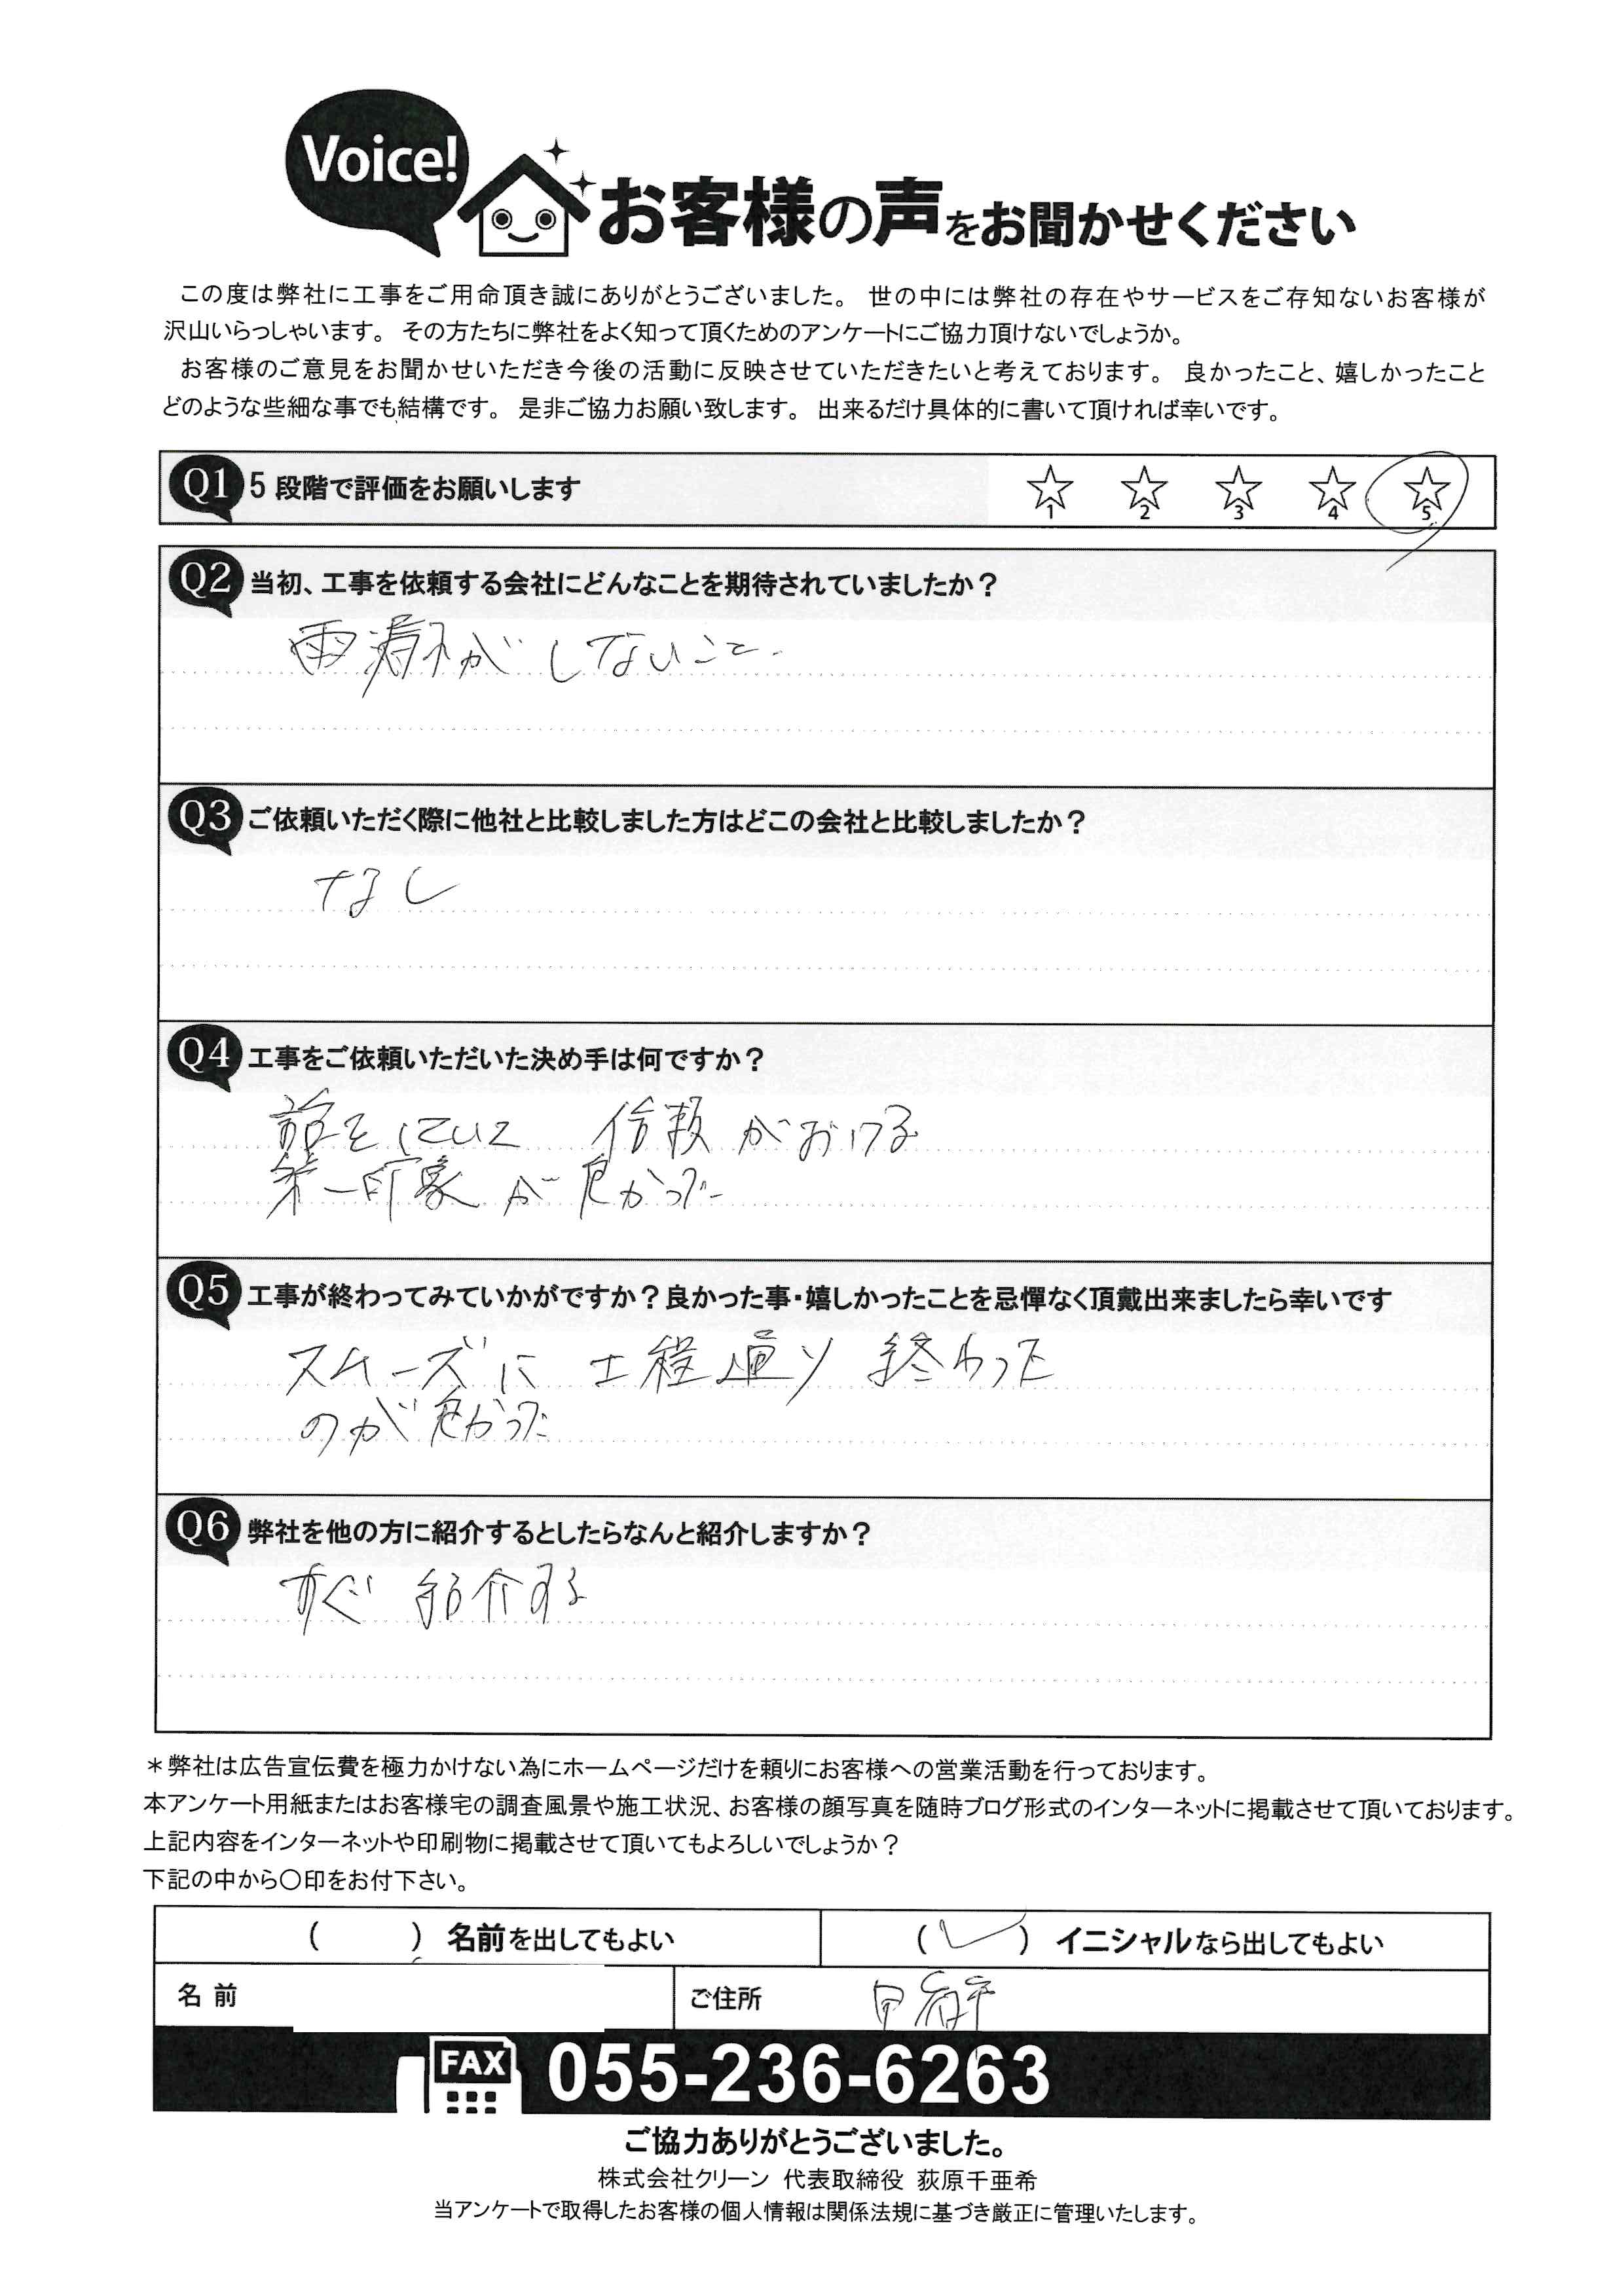 Voice!
お客様の声をお聞かせください
この度は弊社に工事をご用命頂き誠にありがとうございました。 世の中には弊社の存在やサービスをご存知ないお客様が
沢山いらっしゃいます。 その方たちに弊社をよく知って頂くためのアンケートにご協力頂けないでしょうか。
お客様のご意見をお聞かせいただき今後の活動に反映させていただきたいと考えております。 良かったこと、嬉しかったこと
どのような些細な事でも結構です。 是非ご協力お願い致します。 出来るだけ具体的に書いて頂ければ幸いです。
Q1 5 段階で評価をお願いします ☆1 ☆2 ☆3 ☆4 ☆5
Q2 当初、工事を依頼する会社にどんなことを期待されていましたか？
雨漏れがしないこと.
Q3 ご依頼いただく際に他社と比較しました方はどこの会社と比較しましたか？
なし
Q4 工事をご依頼いただいた決め手は何ですか？
話をしていて 信頼がおける
第一印象が良かった
Q5 工事が終わってみていかがですか？良かった事・嬉しかったことを忌憚なく頂戴出来ましたら幸いです
スムーズに 工程通り 終わった
のが良かった
Q6 弊社を他の方に紹介するとしたらなんと紹介しますか？
すぐ 紹介する
＊弊社は広告宣伝費を極力かけない為にホームページだけを頼りにお客様への営業活動を行っております。
本アンケート用紙またはお客様宅の調査風景や施工状況、お客様の顔写真を随時ブログ形式のインターネットに掲載させて頂いております。
上記内容をインターネットや印刷物に掲載させて頂いてもよろしいでしょうか？
下記の中から〇印をお付下さい。
（ ）名前を出してもよい （✓）イニシャルなら出してもよい
名 前 ご住所 甲府市
FAX 055-236-6263
ご協力ありがとうございました。
株式会社クリーン 代表取締役 荻原千亜希
当アンケートで取得したお客様の個人情報は関係法規に基づき厳正に管理いたします。